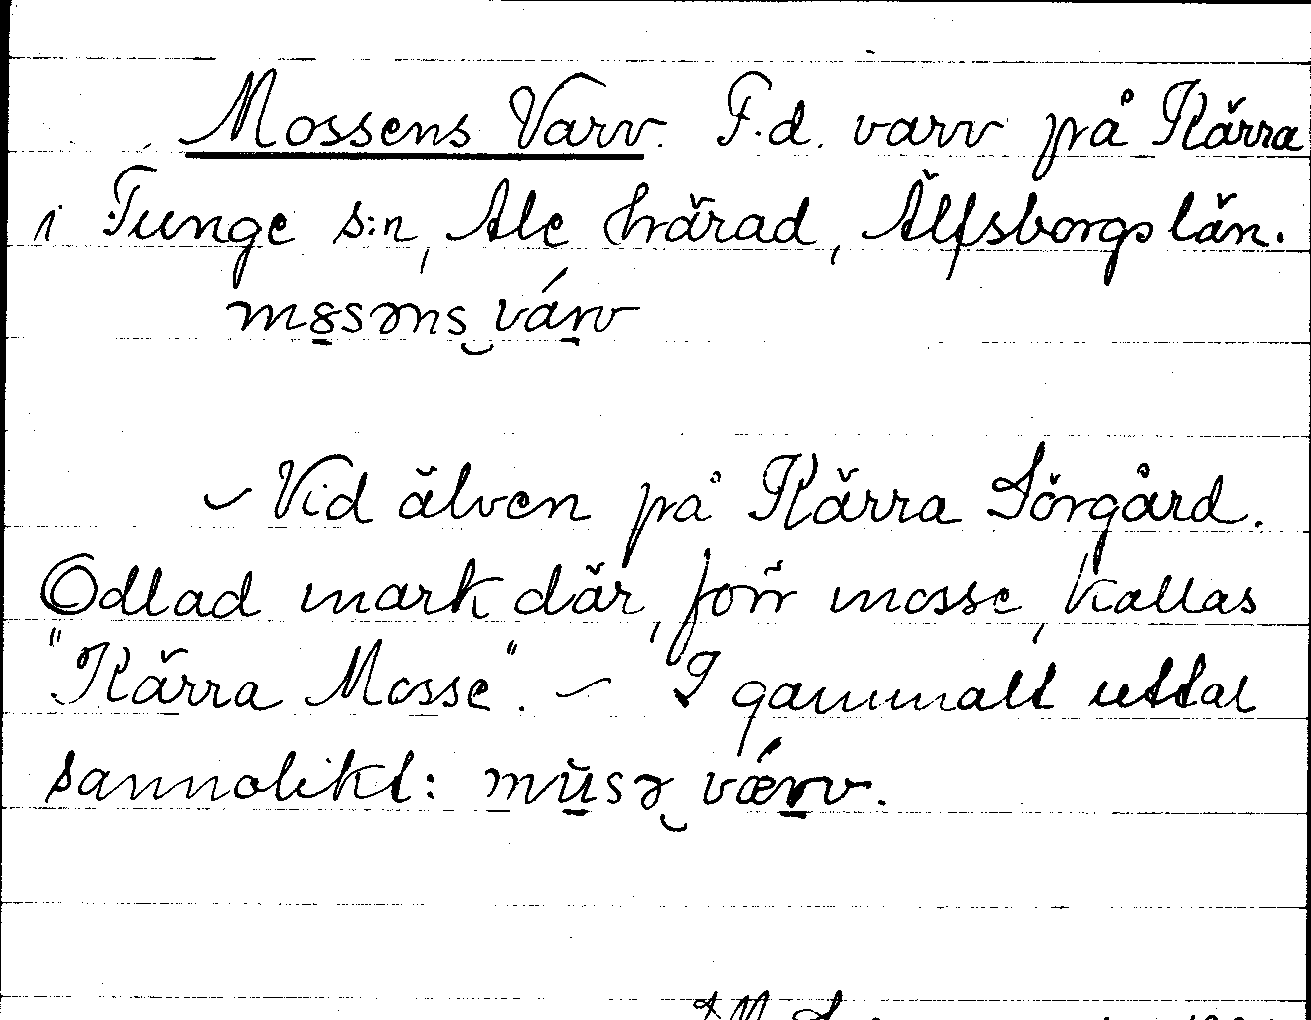 Mossens Varv. F.d. varv på Kärra
i Tunge s:n, Ale härad, Älfsborgs län.
m8səns‿várv
– Vid älven på Kärra Sörgård.
Odlad mark där, förr mosse, kallas
"Kärra Mosse". – I gammalt uttal
sannolikt: mŭsə‿vǽrv.